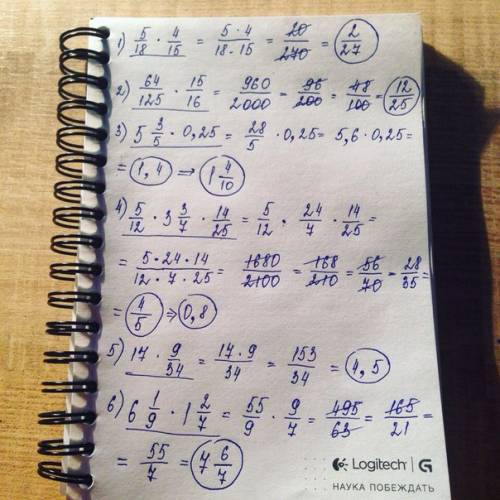 1) 5/18 · 4/15 = 5·4/18·15 = 20/270 = 2/27
2) 64/125 · 15/16 = 960/2000 = 96/200 = 48/100 = 12/25
3) 5 3/5 · 0,25 = 28/5 · 0,25 = 5,6 · 0,25 =
= 1,4 ⇒ 1 4/10
4) 5/12 · 3 3/7 · 14/25 = 5/12 · 24/7 · 14/25 =
= 5·24·14/12·7·25 = 1680/2100 = 168/210 = 56/70 = 28/35 =
= 4/5 ⇒ 0,8
5) 17 · 9/34 = 17·9/34 = 153/34 = 4,5
6) 6 1/9 · 1 2/7 = 55/9 · 9/7 = 495/63 = 165/21 =
= 55/7 = 7 6/7
Logitech G
НАУКА ПОБЕЖДАТЬ